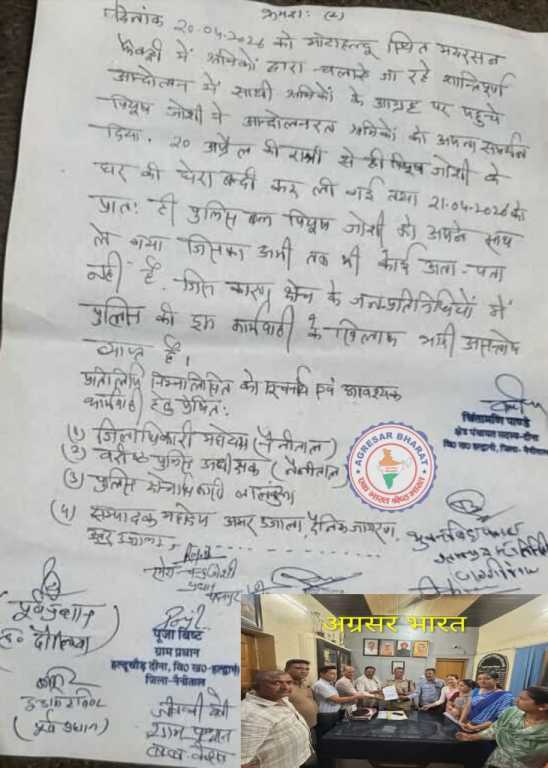 क्रमशः (2)
दिनांक 20-04-2026 को मोटाहल्दू स्थित
फैक्ट्री में श्रमिकों द्वारा चलाये जा रहे शान्तिपूर्ण
आन्दोलन में साथी श्रमिकों के आग्रह पर पहुचे
पियूष जोशी ने आन्दोलनरत श्रमिकों को अपना समर्थन
दिया. 20 अप्रैल की रात्री से ही पियूष जोशी के
घर की घेराबन्दी कर ली गई तथा 21-04-2026 को
प्रातः ही पुलिस बल पियूष जोशी को अपने साथ
ले गया जिसका अभी तक भी कोई अता-पता
नही है. जिस कारण क्षेत्र के जनप्रतिनिधियों में
पुलिस की इस कार्यवाही के खिलाफ भारी असन्तोष
व्याप्त है।
प्रतिलिपि निम्नलिखित को सूचनार्थ एवं आवश्यक
कार्यवाही हेतु प्रेषित:
(1) जिलाधिकारी महोदय (नैनीताल)
(2) वरिष्ठ पुलिस अधीक्षक (नैनीताल)
(3) पुलिस क्षेत्राधिकारी लालकुआं
(4) सम्पादक महोदय अमर उजाला, दैनिक जागरण,
चिंतामणि पाण्डे
क्षेत्र पंचायत सदस्य-दीना
वि० ख० हल्द्वानी, जिला- नैनीताल
AGRESAR BHARAT
एक भारत श्रेष्ठ भारत
पूर्व प्रधान
पूजा बिष्ट
ग्राम प्रधान
हल्दूचौड़ दीना, वि० ख०-हल्द्वानी
जिला-नैनीताल
(पूर्व प्रधान)
ग्राम प्रधान
अग्रसर भारत